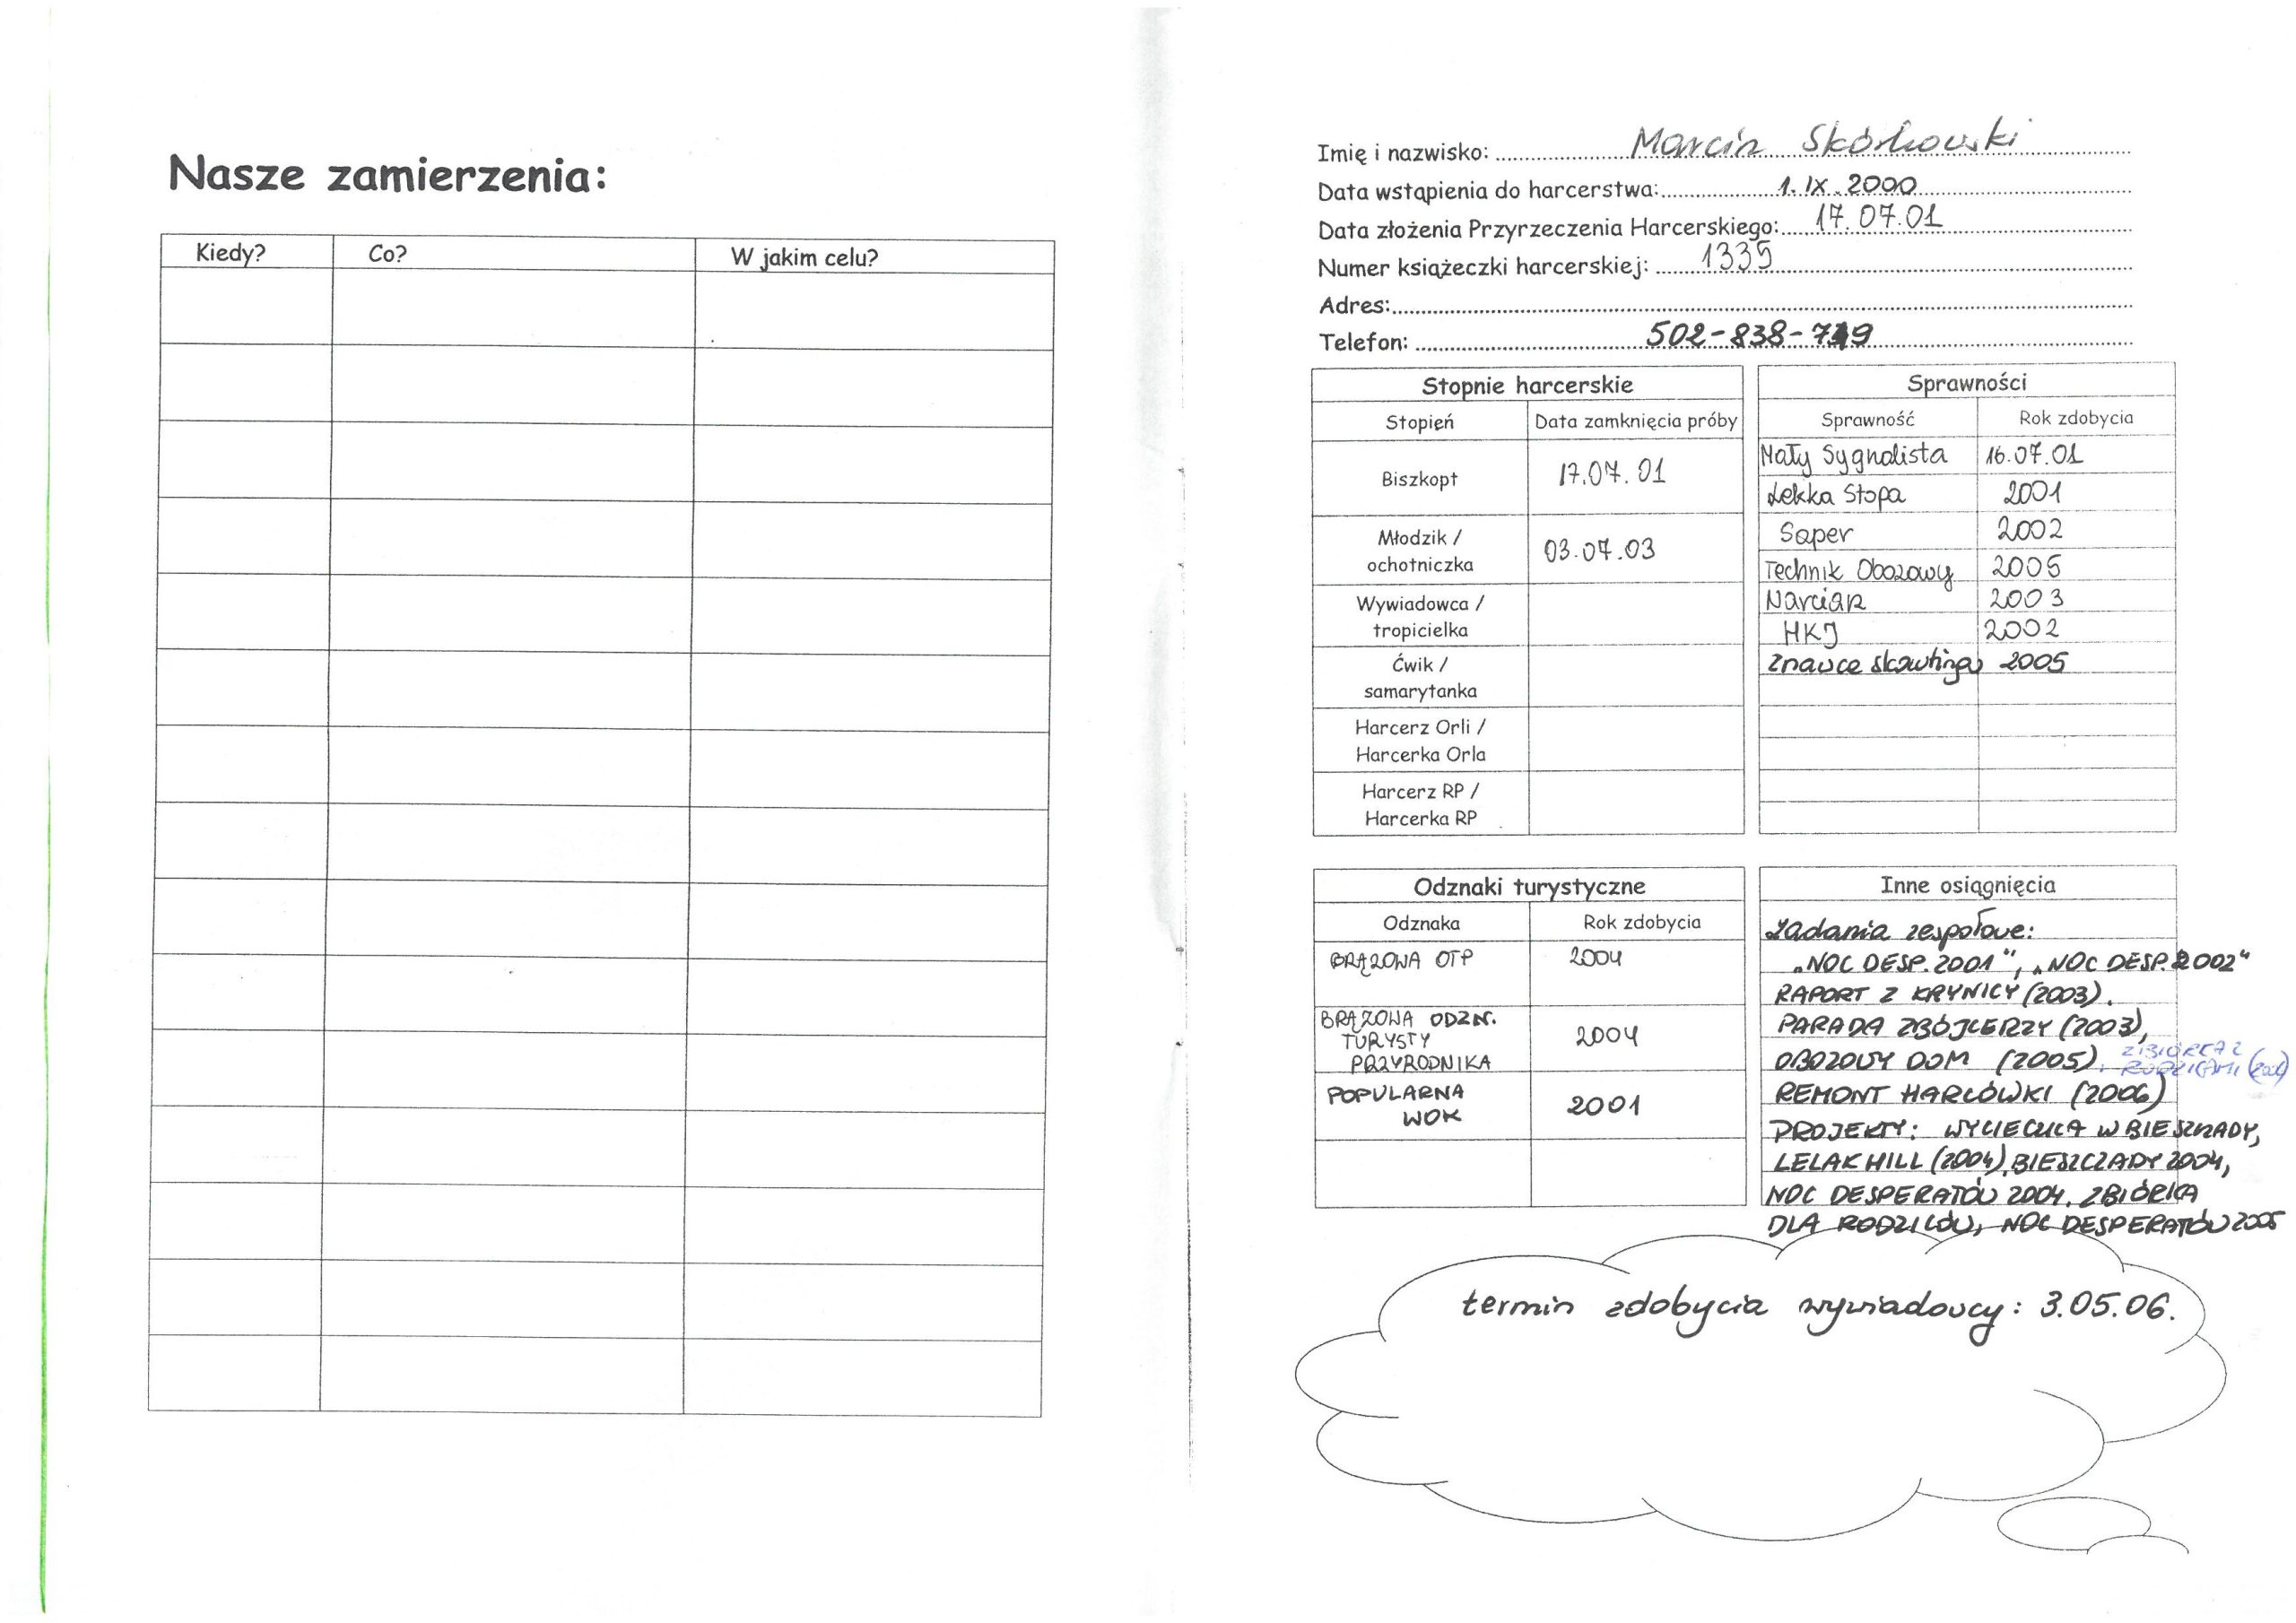 Nasze zamierzenia:
Kiedy? Co? W jakim celu?
Imię i nazwisko: Marcin Skórkowski
Data wstąpienia do harcerstwa: 1. IX. 2000
Data złożenia Przyrzeczenia Harcerskiego: 17.07.01
Numer książeczki harcerskiej: 1339
Adres:
Telefon: 502-838-719
Stopnie harcerskie
Stopień Data zamknięcia próby
Biszkopt 17.07.01
Młodzik /
ochotniczka 03.07.03
Wywiadowca /
tropicielka
Ćwik /
samarytanka
Harcerz Orli /
Harcerka Orla
Harcerz RP /
Harcerka RP
Sprawności
Sprawność Rok zdobycia
Mały Sygnalista 16.07.01
Lekka Stopa 2001
Saper 2002
Technik Obozowy 2005
Narciarz 2003
HKJ 2002
Znawca skautingu 2005
Odznaki turystyczne
Odznaka Rok zdobycia
BRĄZOWA OTP 2004
BRĄZOWA ODZN.
TURYSTY 2004
PRZYRODNIKA
POPULARNA
WOK 2001
Inne osiągnięcia
Zadania zespołowe:
„NOC DESP. 2001", „NOC DESP. 2002"
RAPORT Z KRYNICY (2003).
PARADA ZBÓJCERZY (2003),
OBOZOWY DOM (2005). ZBIÓRKA Z
RODZICAMI
REMONT HARCÓWKI (2006)
PROJEKTY: WYCIECZKA W BIESZCZADY,
LELAK HILL (2004), BIESZCZADY 2004,
NOC DESPERATÓW 2004, ZBIÓRKA
DLA RODZICÓW, NOC DESPERATÓW 2005
termin zdobycia wywiadowcy: 3.05.06.